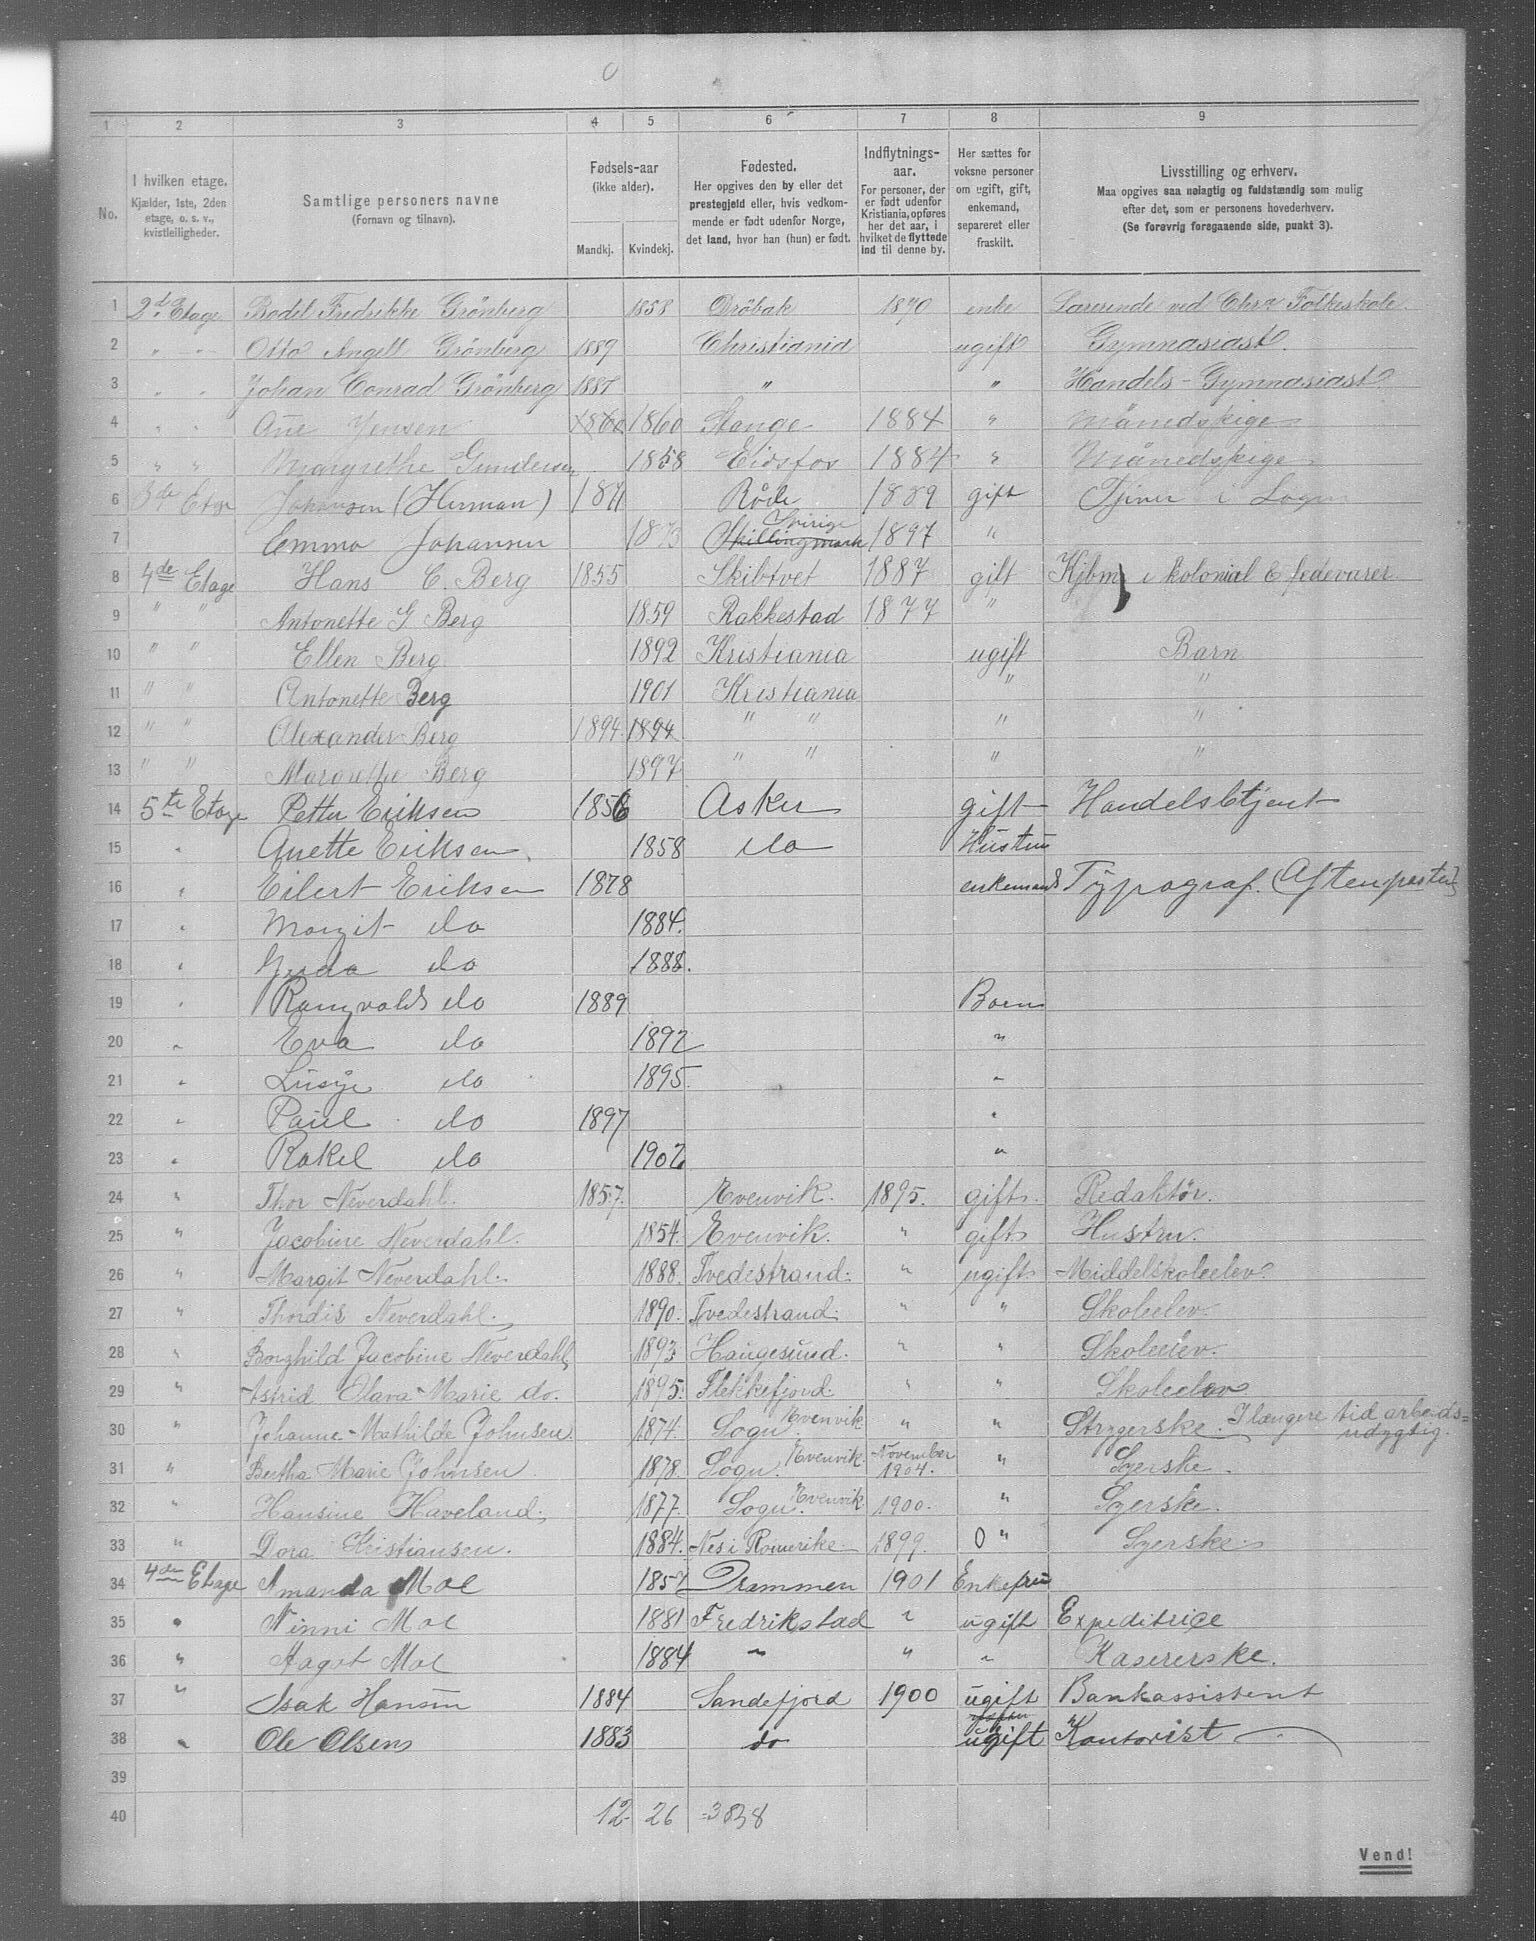 0
1 2 3 4 5 6 7 8 9
No.
I hvilken etage.
Kjælder, 1ste, 2den
etage, o. s. v.,
kvistleiligheder.
Samtlige personers navne
(Fornavn og tilnavn).
Fødsels-aar
(ikke alder).
Mandkj. Kvindekj.
Fødested.
Her opgives den by eller det
prestegjeld eller, hvis vedkom-
mende er født udenfor Norge,
det land, hvor han (hun) er født.
Indflytnings-
aar.
For personer, der
er født udenfor
Kristiania, opføres
her det aar, i
hvilket de flyttede
ind til denne by.
Her sættes for
voksne personer
om ugift, gift,
enkemand,
separeret eller
fraskilt.
Livsstilling og erhverv.
Maa opgives saa nøiagtig og fuldstændig som mulig
efter det, som er personens hovederhverv.
(Se forøvrig foregaaende side, punkt 3).
1 2d. Etage Bodel Fredrikke Grönberg 1858 Dröbak 1870 enke Lærerinde ved Chra Folkeskole.
2 " " Otto Angell Grönberg 1889 Christiania ugift Gymnasiast.
3 " " Johan Conrad Grönberg 1887 " " Handels-Gymnasiast
4 " " Ane Jensen 1860 1860 Stange 1884 " Månedspige
5 " " Margrethe Gundersen 1858 Eidsfos 1884 " Månedspige
6 3de Etge Johansen (Herman) 1871 Råde 1889 gift Tjener i Logen
7 Emma Johansen 1873 Skillingmark Sverige 1897 "
8 4de Etage Hans C. Berg 1855 Skibtvet 1887 gift Kjbm i kolonial & fedevarer
9 " " Antonette G Berg 1859 Rakkestad 1877 "
10 " " Ellen Berg 1892 Kristiania ugift Barn
11 " " Antonette Berg 1901 Kristiania " "
12 " " Alexander Berg 1894 1894 " " " "
13 " " Margrethe Berg 1897 " " " "
14 5te Etage Petter Eriksen 1856 Asker gift Handelsbetjent
15 " Anette Eriksen 1858 do Hustru
16 " Eilert Eriksen 1878 enkemand Typograf. (Aftenposten)
17 " Margit do 1884.
18 " Gerda do 1888.
19 " Rangvald do 1889 Barn
20 " Eva do 1892 "
21 " Lusye do 1895. "
22 " Paul do 1897 "
23 " Rakel do 1902 "
24 " Thor Neverdahl. 1857. Evenvik. 1895. gift. Redaktör.
25 " Jacobine Neverdahl. 1854. Evenvik. " gift Hustru.
26 " Margit Neverdahl. 1888. Tvedestrand. " ugift Middelskoleelev.
27 " Thordis Neverdahl. 1890. Tvedestrand. " " Skoleelev.
28 " Borghild Jacobine Neverdahl 1893 Haugesund. " " Skoleelev.
29 " Astrid Olava-Marie do. 1895. Flekkefjord. " " Skoleelev
30 " Johanne-Mathilde Johnsen 1874. Sogn. Evenvik " " Strygerske. I længere tid arbeids=
udygtig.
31 " Bertha Marie Johnsen 1878. Sogn. Evenvik November
1904. " Syerske.
32 " Hansine Haveland. 1877. Sogn. Evenvik 1900. " Syerske.
33 " Dora Kristiansen. 1884. Nes i Romerike 1899. 0 " Syerske.
34 4de Etage Amanda Moe 1857 Drammen 1901 Enkefru
35 " Ninni Moe 1881 Fredrikstad " ugift Expeditrice
36 " Aagot Moe 1884 " " " Kasererske.
37 " Isak Hansen 1884 Sandefjord 1900 ugift Bankassistent
38 " Ole Olsen 1883 do ugift Kontorist
39
40 12 26 =3838
Vend!